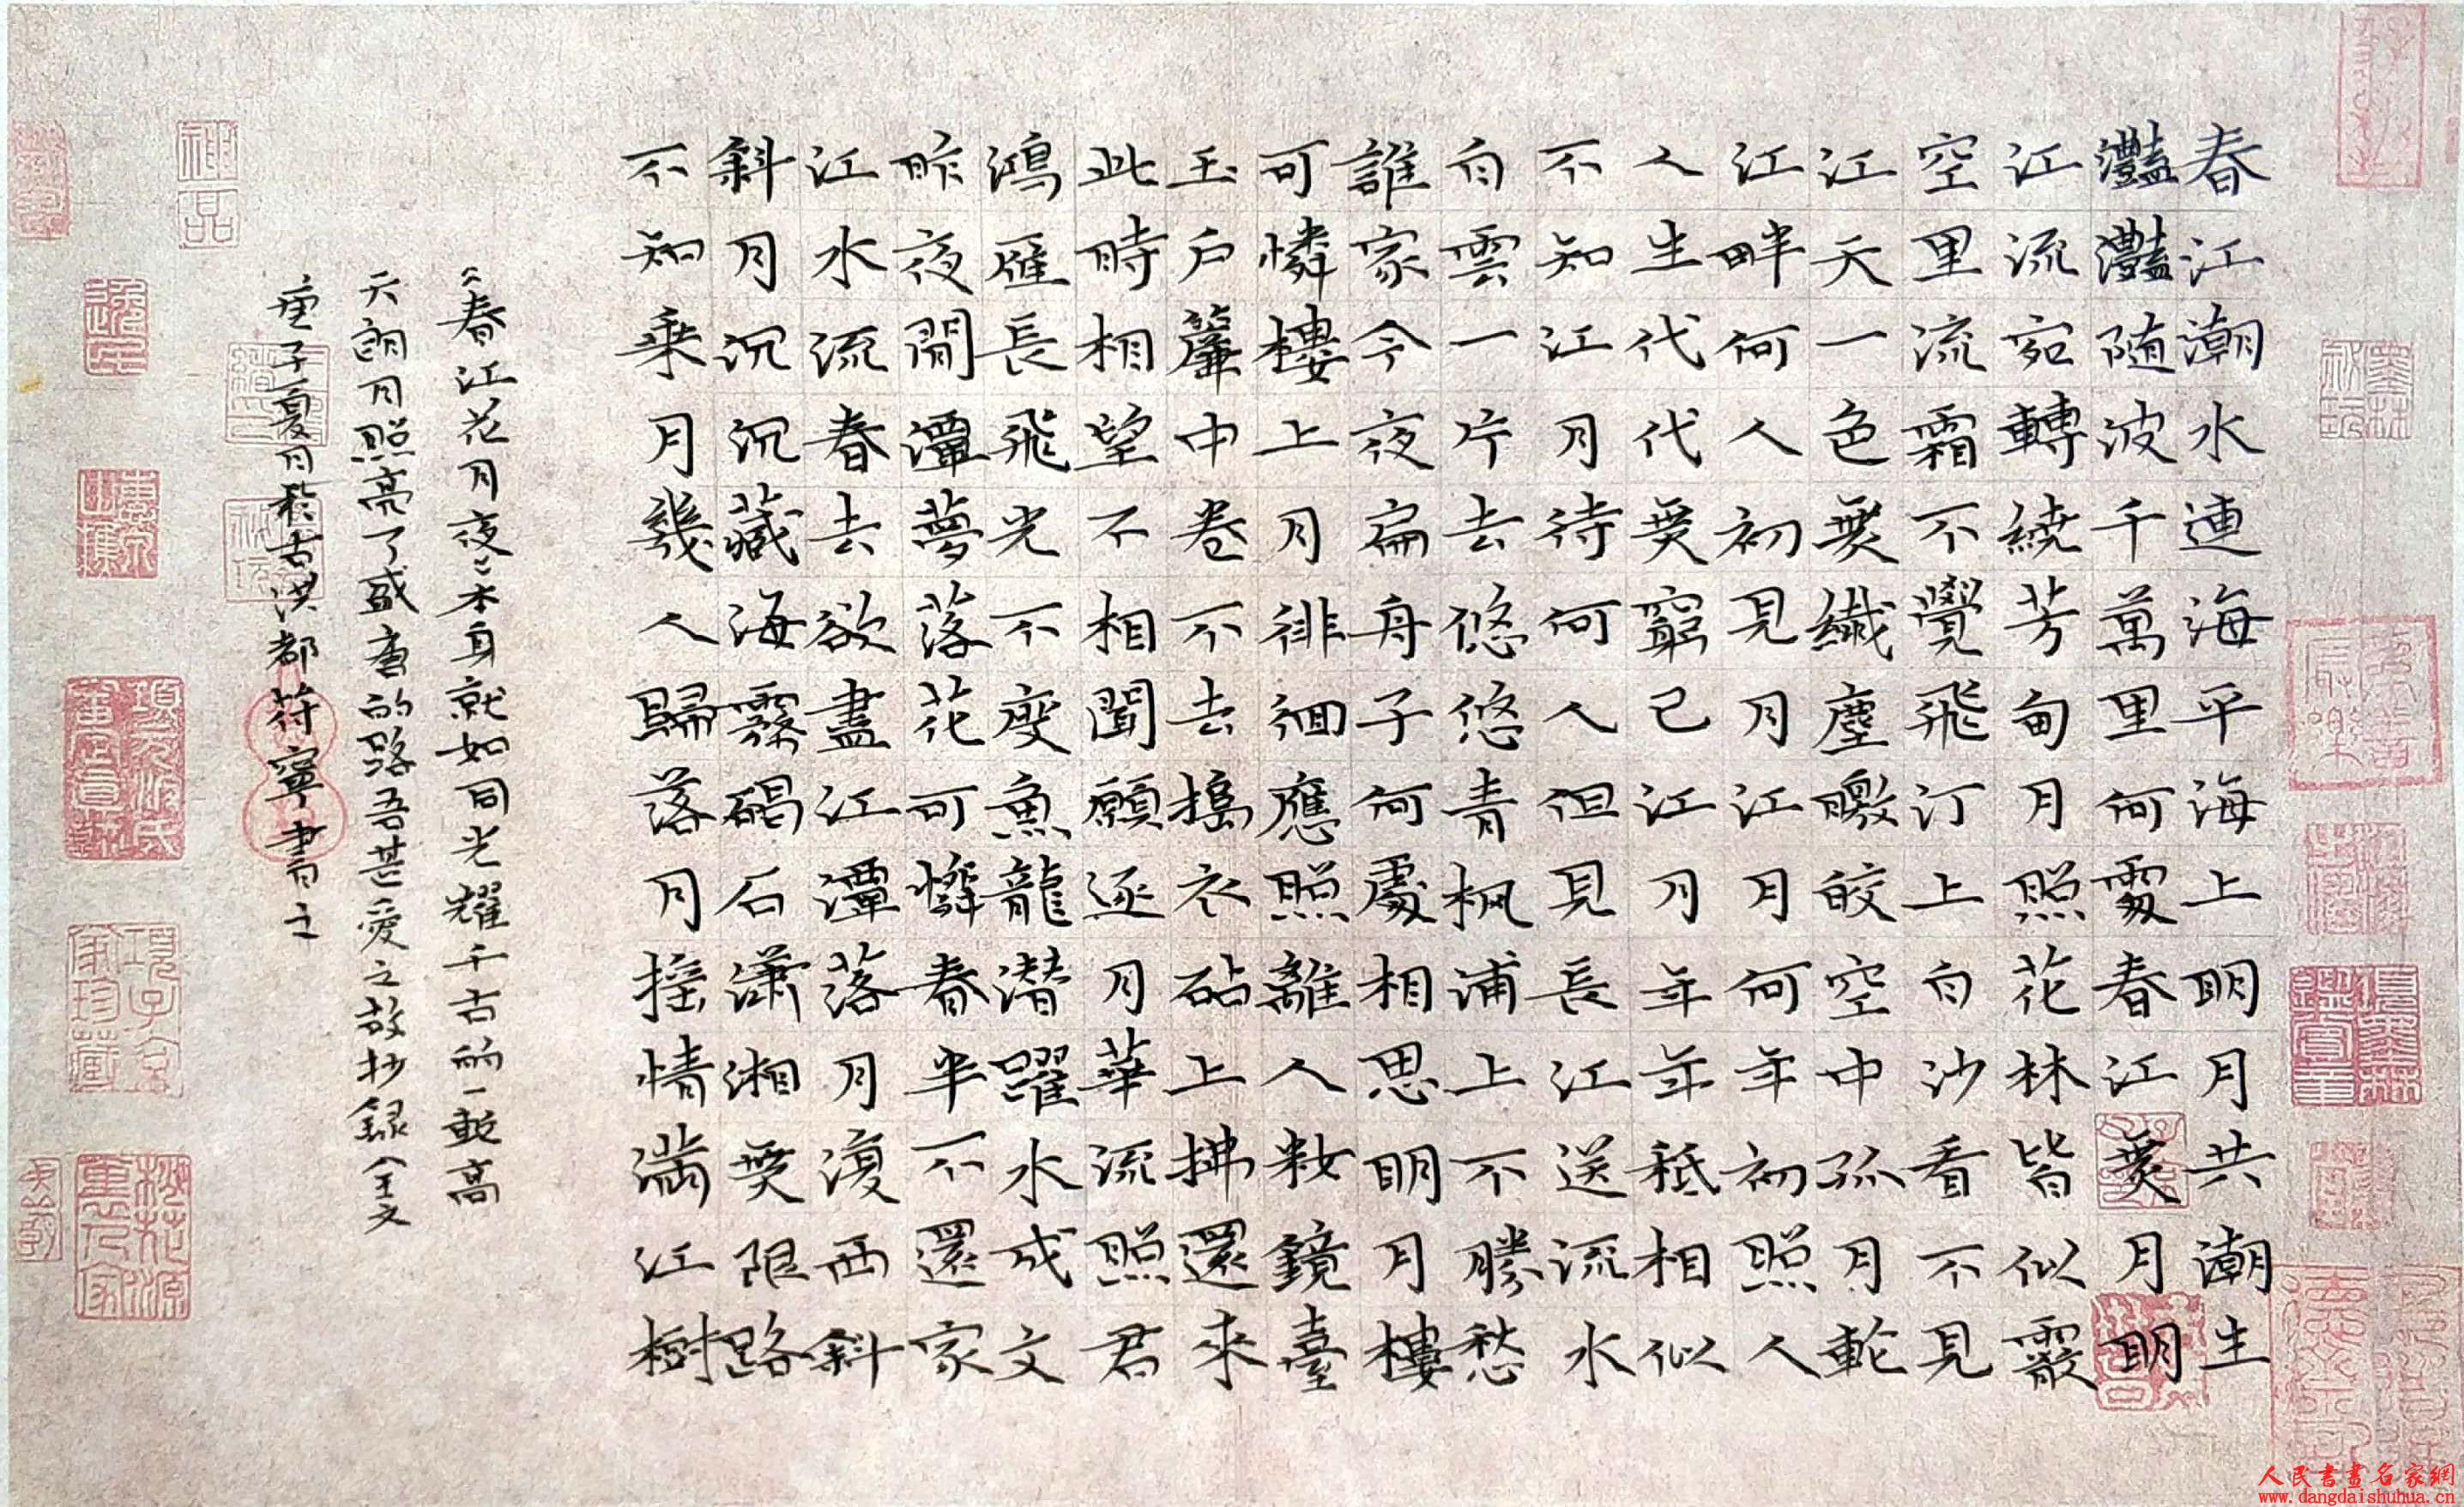 春江潮水連海平海上明月共潮生
灩灩隨波千萬里何處春江無月明
江流宛轉繞芳甸月照花林皆似霰
空里流霜不覺飛汀上白沙看不見
江天一色無纖塵皦皎空中孤月輪
江畔何人初見月江月何年初照人
人生代代無窮已江月年年秪相似
不知江月待何人但見長江送流水
白雲一片去悠悠青枫浦上不勝愁
誰家今夜扁舟子何處相思明月樓
可憐樓上月徘徊應照離人妝鏡臺
玉户簾中卷不去搗衣砧上拂還來
此時相望不相聞願逐月華流照君
鴻雁長飛光不度魚龍潜躍水成文
昨夜閒潭夢落花可憐春半不還家
江水流春去欲盡江潭落月復西斜
斜月沉沉藏海霧碣石瀟湘無限路
不知乘月幾人歸落月摇情满江樹
《春江花月夜》本身就如同光耀千古的一輪高
天朗月照亮了盛唐的路吾甚愛之故抄録全文
庚子夏月於古洪都符寧書之
神品
人民書畫名家網
www.dangdaishuhua.cn